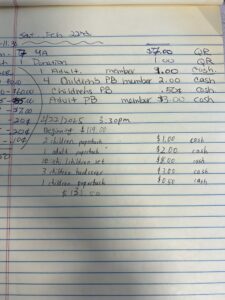 Sat. Feb 22nd
7 4A $7.00 QR
1 Donation 1.00 QR
1 Adult member $1.00 cash.
4 Children's PB member 2.00 cash
1 Children's PB .50¢ cash
Adult PB member $3.00 cash
4/22/2025 3:30pm
Beginning $119.00
2 children paperback $1.00 cash
1 adult paperback $2.00 cash
children set $8.00 cash
3 children hardcover $3.00 cash
1 children paperback $0.50 cash